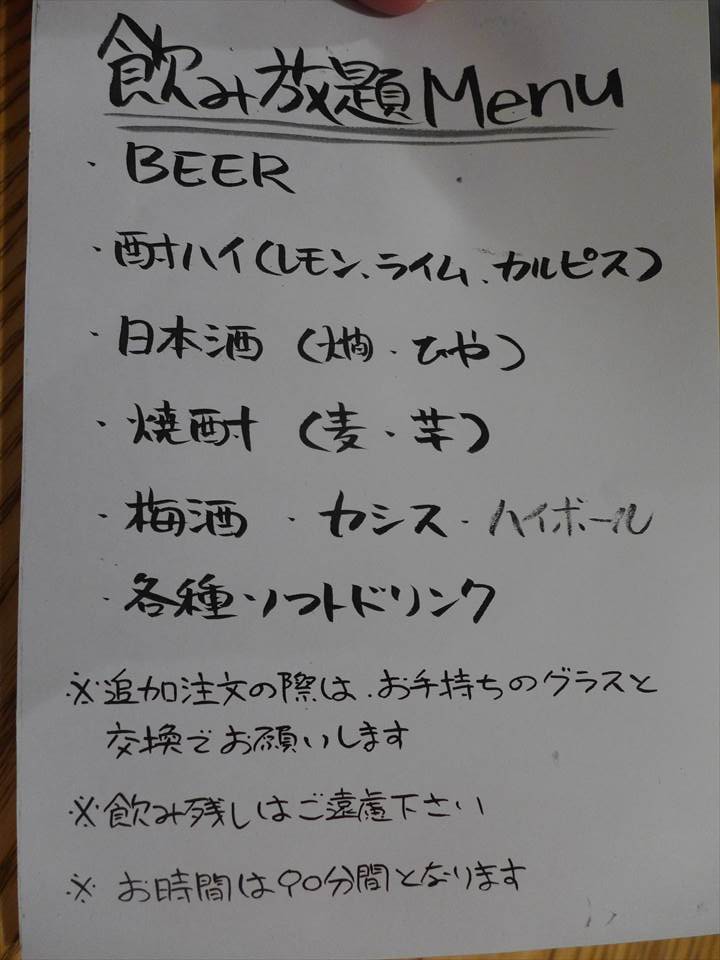 飲み放題Menu
・BEER
・酎ハイ(レモン、ライム、カルピス)
・日本酒 (燗・ひや)
・焼酎 (麦・芋)
・梅酒 ・カシス・ハイボール
・各種ソフトドリンク
※追加注文の際は、お手持ちのグラスと
交換でお願いします
※飲み残しはご遠慮下さい
※お時間は90分間となります